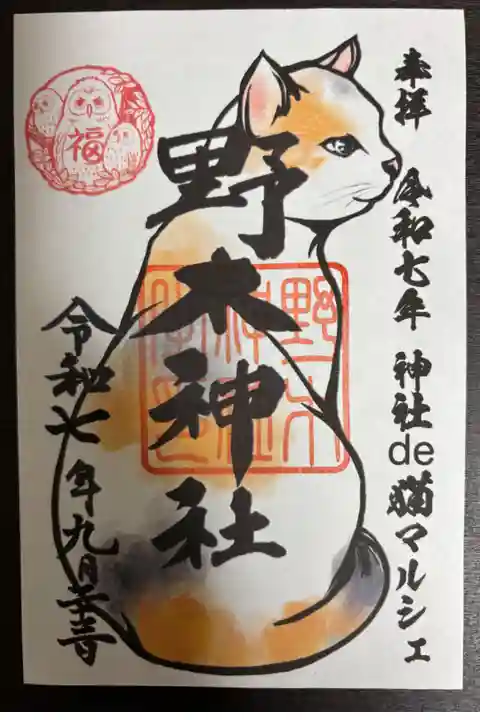 奉拝 令和七年 神社de猫マルシェ
野木神社
令和七年九月
福
野木
神社